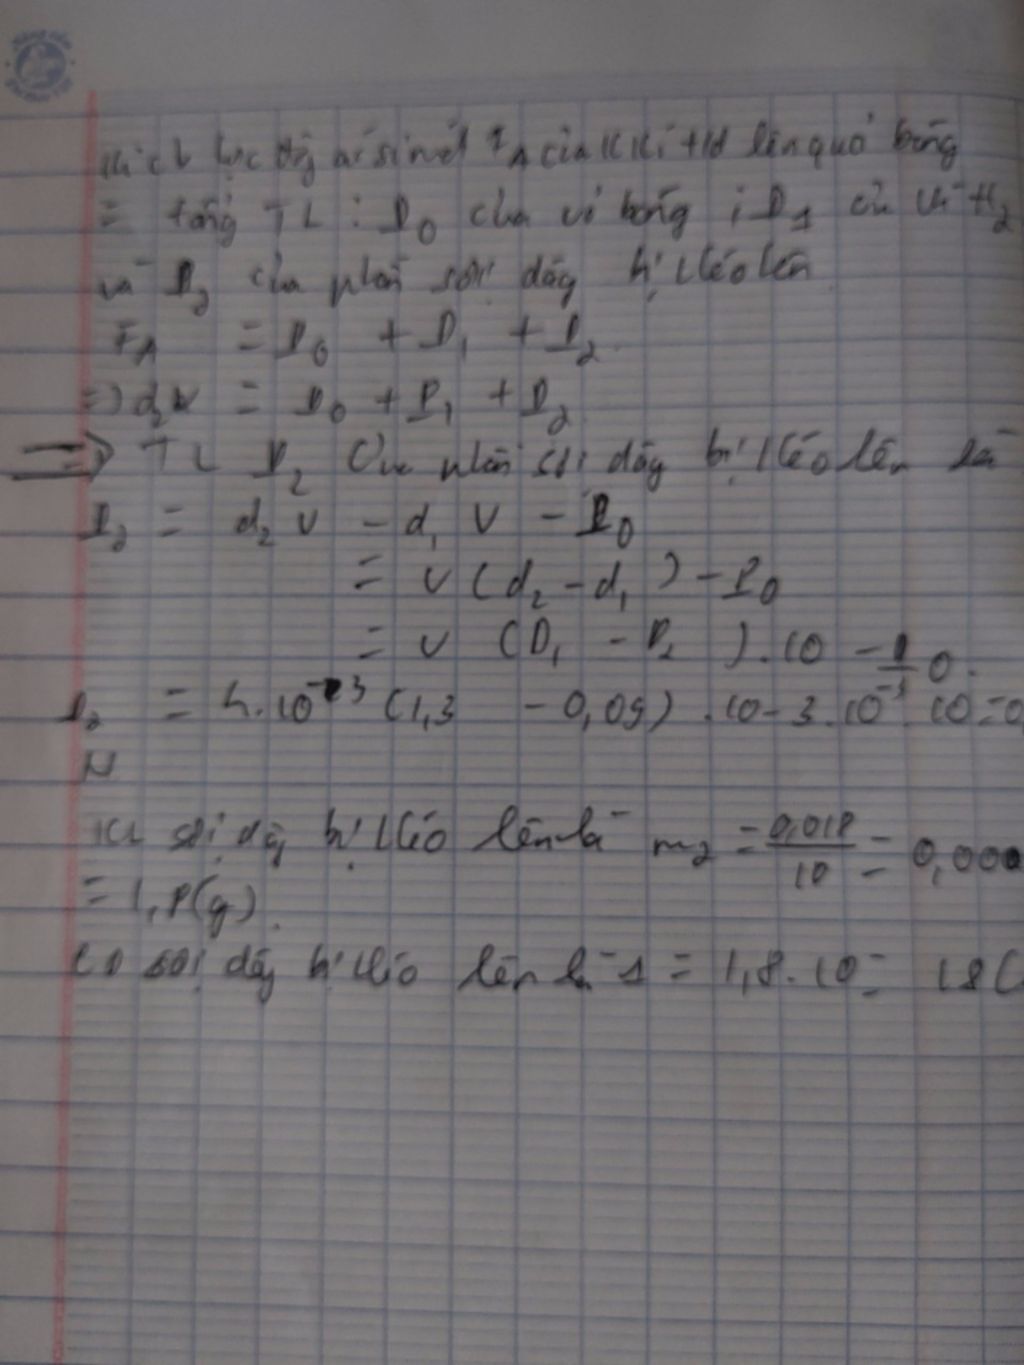 lực đẩy ácsimét F_A của KKí td lên quả bóng
= tổng TL : P_0 của vỏ bóng ; P_1 của khí H_2
và P_2 của phần sợi dây bị kéo lên
F_A = P_0 + P_1 + P_2
=> d_2V = P_0 + P_1 + P_2
=> TL P_2 của phần sợi dây bị kéo lên là
P_2 = d_2 V - d_1 V - P_0
= V (d_2 - d_1) - P_0
= V (D_1 - D_2) . 10 - P_0
P_2 = 4.10^-3 (1,3 - 0,09) . 10 - 3.10^-3 . 10 = 0
N
KL sợi dây bị kéo lên là m_2 = 0,018/10 = 0,000
= 1,8(g).
CD sợi dây bị kéo lên là 1 = 1,8.10 = 18(